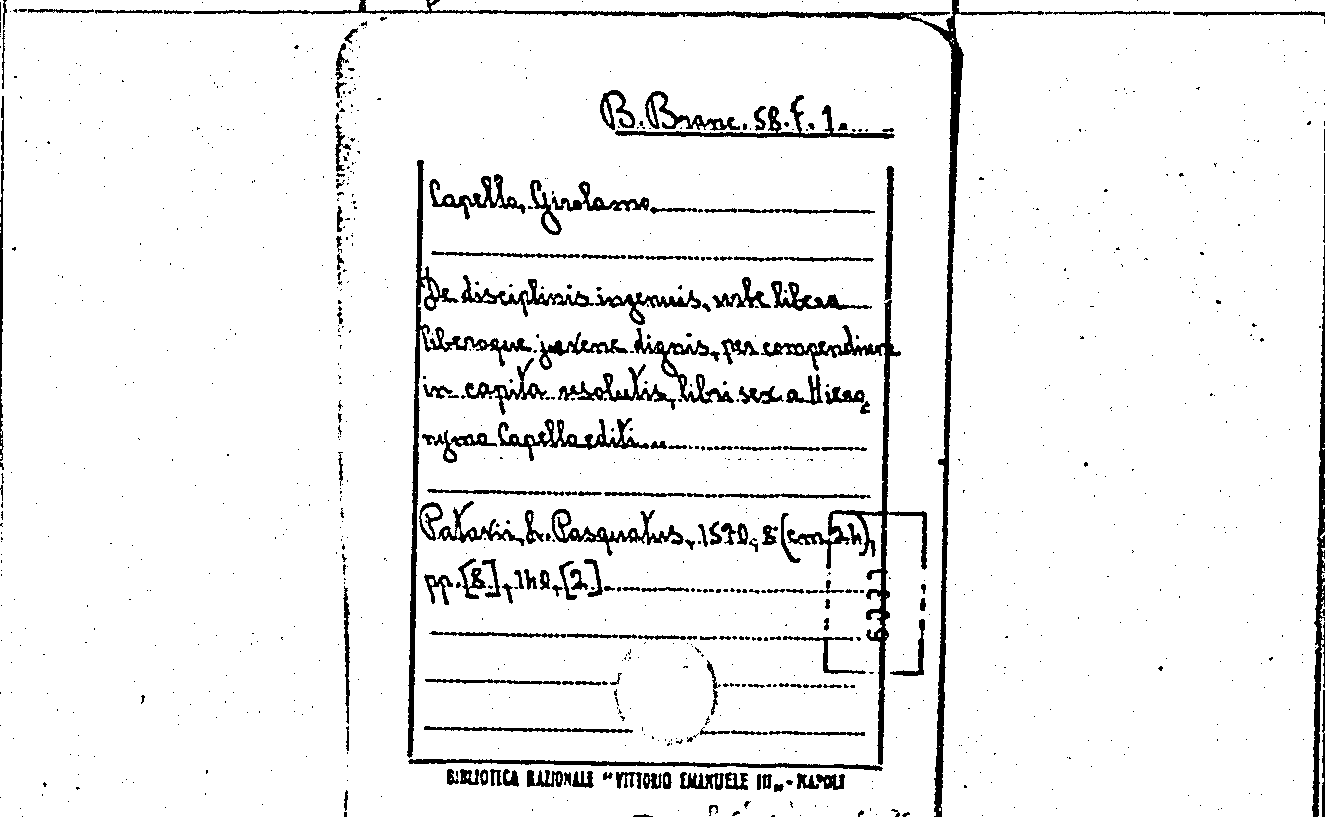 B. Branc. 58. F. 1.
Capella, Girolamo
De disciplinis ingenuis, urbe libera
liberoque juvene dignis, per compendium
in capita resolutis, libri sex a Hiero-
nymo Capella editi...
Patavii, L. Pasquatus, 1570, 8 (cm. 24),
pp. [8], 140, [2].
BIBLIOTECA NAZIONALE "VITTORIO EMANUELE III„ - NAPOLI